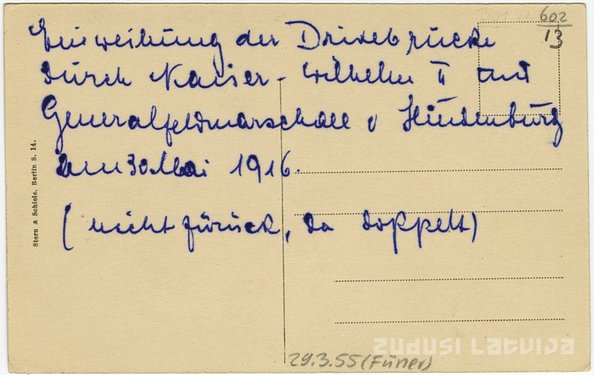 602
13
Einweihung der Drixebrücke
durch Kaiser-Wilhelm II und
Generalfeldmarschall v Hindenburg
am 30. Mai 1916.
(nicht zurück, da doppelt)
Stern & Schiele, Berlin S. 14.
29.3.55 (Füner)
ZUDUSI LATVIJA